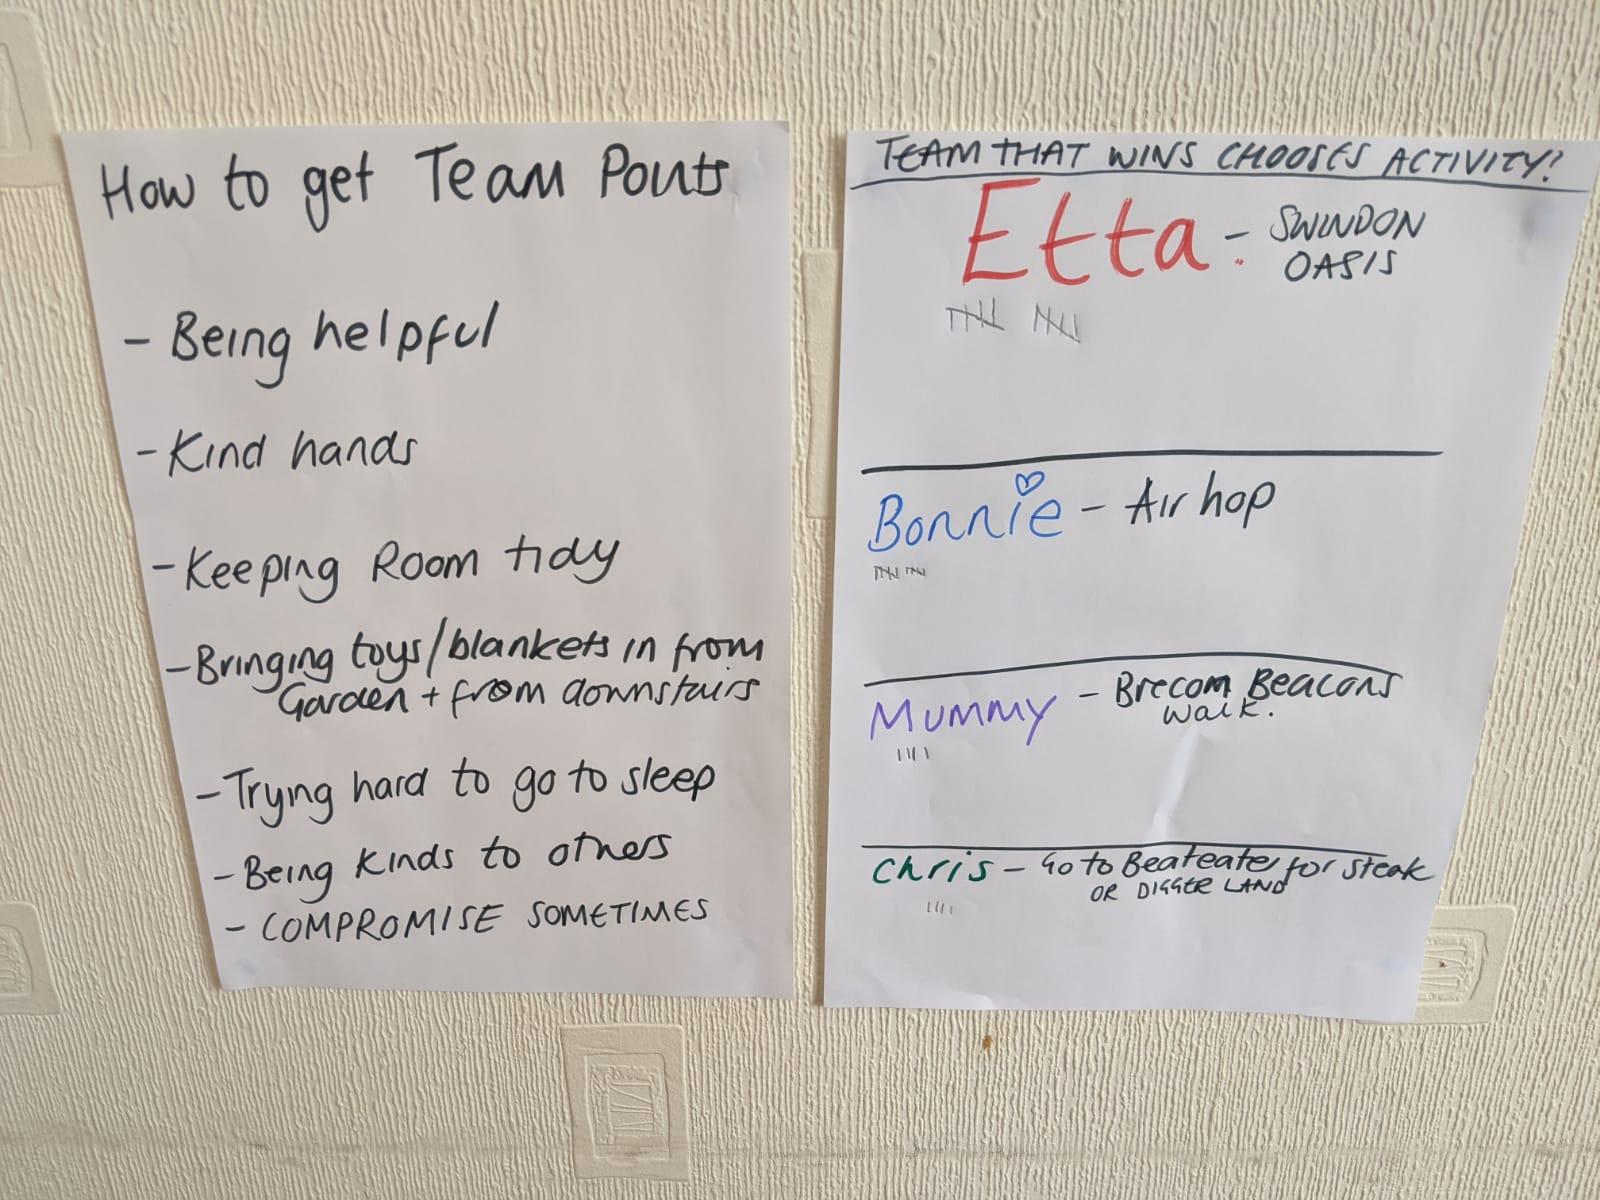 How to get Team Points
- Being helpful
- Kind hands
- Keeping Room tidy
- Bringing toys/blankets in from
Garden + from downstairs
- Trying hard to go to sleep
- Being kinds to others
- COMPROMISE SOMETIMES
TEAM THAT WINS CHOOSES ACTIVITY!
Etta - SWINDON
OASIS
Bonnie - Air hop
Mummy - Brecom Beacons
walk.
Chris - Go to Beateater for steak
OR DIGGER LAND